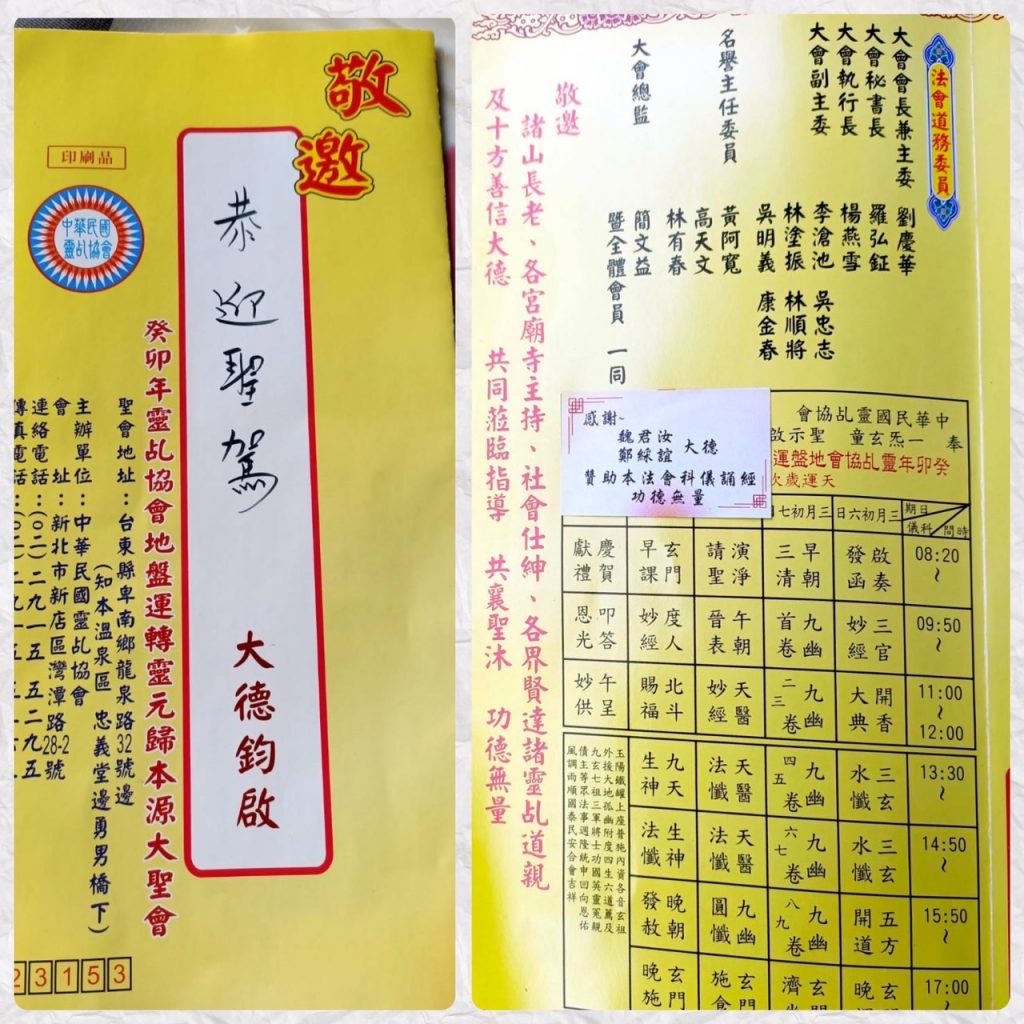 敬邀
印刷品
中華民國
靈乩協會
恭迎聖駕
大德鈞啟
癸卯年靈乩協會地盤運轉靈元歸本源大聖會
聖會地址：台東縣卑南鄉龍泉路32號邊
（知本溫泉區 忠義堂邊勇男橋下）
主辦單位：中華民國靈乩協會
會址：新北市新店區灣潭路28-2號
連絡電話：(〇二)二九一五五二九五
23153
法會道務委員
大會會長兼主委 劉慶華
大會秘書長 羅弘鉦
大會執行長 楊燕雪
大會副主委 李滄池 吳忠志
林塗振 林順將
吳明義 康金春
名譽主任委員 黃阿寬
高天文
林有春
大會總監 簡文益
暨全體會員 一同
敬邀
諸山長老、各宮廟寺主持、社會仕紳、各界賢達諸靈乩道親
及十方善信大德 共同蒞臨指導 共襄聖沐 功德無量
感謝~
魏君汝
鄭綵誼 大德
贊助本法會科儀誦經
功德無量
中華民國靈乩協會
奉 一炁玄童 聖示啟
癸卯年靈乩協會地盤運
天運歲次
日期 時間 儀科
三月初六日
三月初七
08:20～
啟奏發函
早朝三清
演淨請聖
玄門早課
慶賀獻禮
09:50～
三官妙經
九幽首卷
午朝晉表
度人妙經
叩答恩光
11:00～12:00
開香大典
九幽二三卷
天醫妙經
北斗賜福
午呈妙供
13:30～
三玄水懺
九幽四五卷
天醫法懺
九天生神
14:50～
三玄水懺
九幽六七卷
天醫法懺
生神法懺
15:50～
五方開道
九幽八九卷
九幽圓懺
晚朝發赦
17:00～
玄門晚課
玄門濟幽
玄門施食
玄門晚施
玉陽鐵罐上座普施內資各音玄祖
外援大地孤幽附度四生六道薦及
九玄七祖三軍將士功國英靈冤親
債主等眾法事週隆統申回向恩佑
風調雨順國泰民安合會吉祥